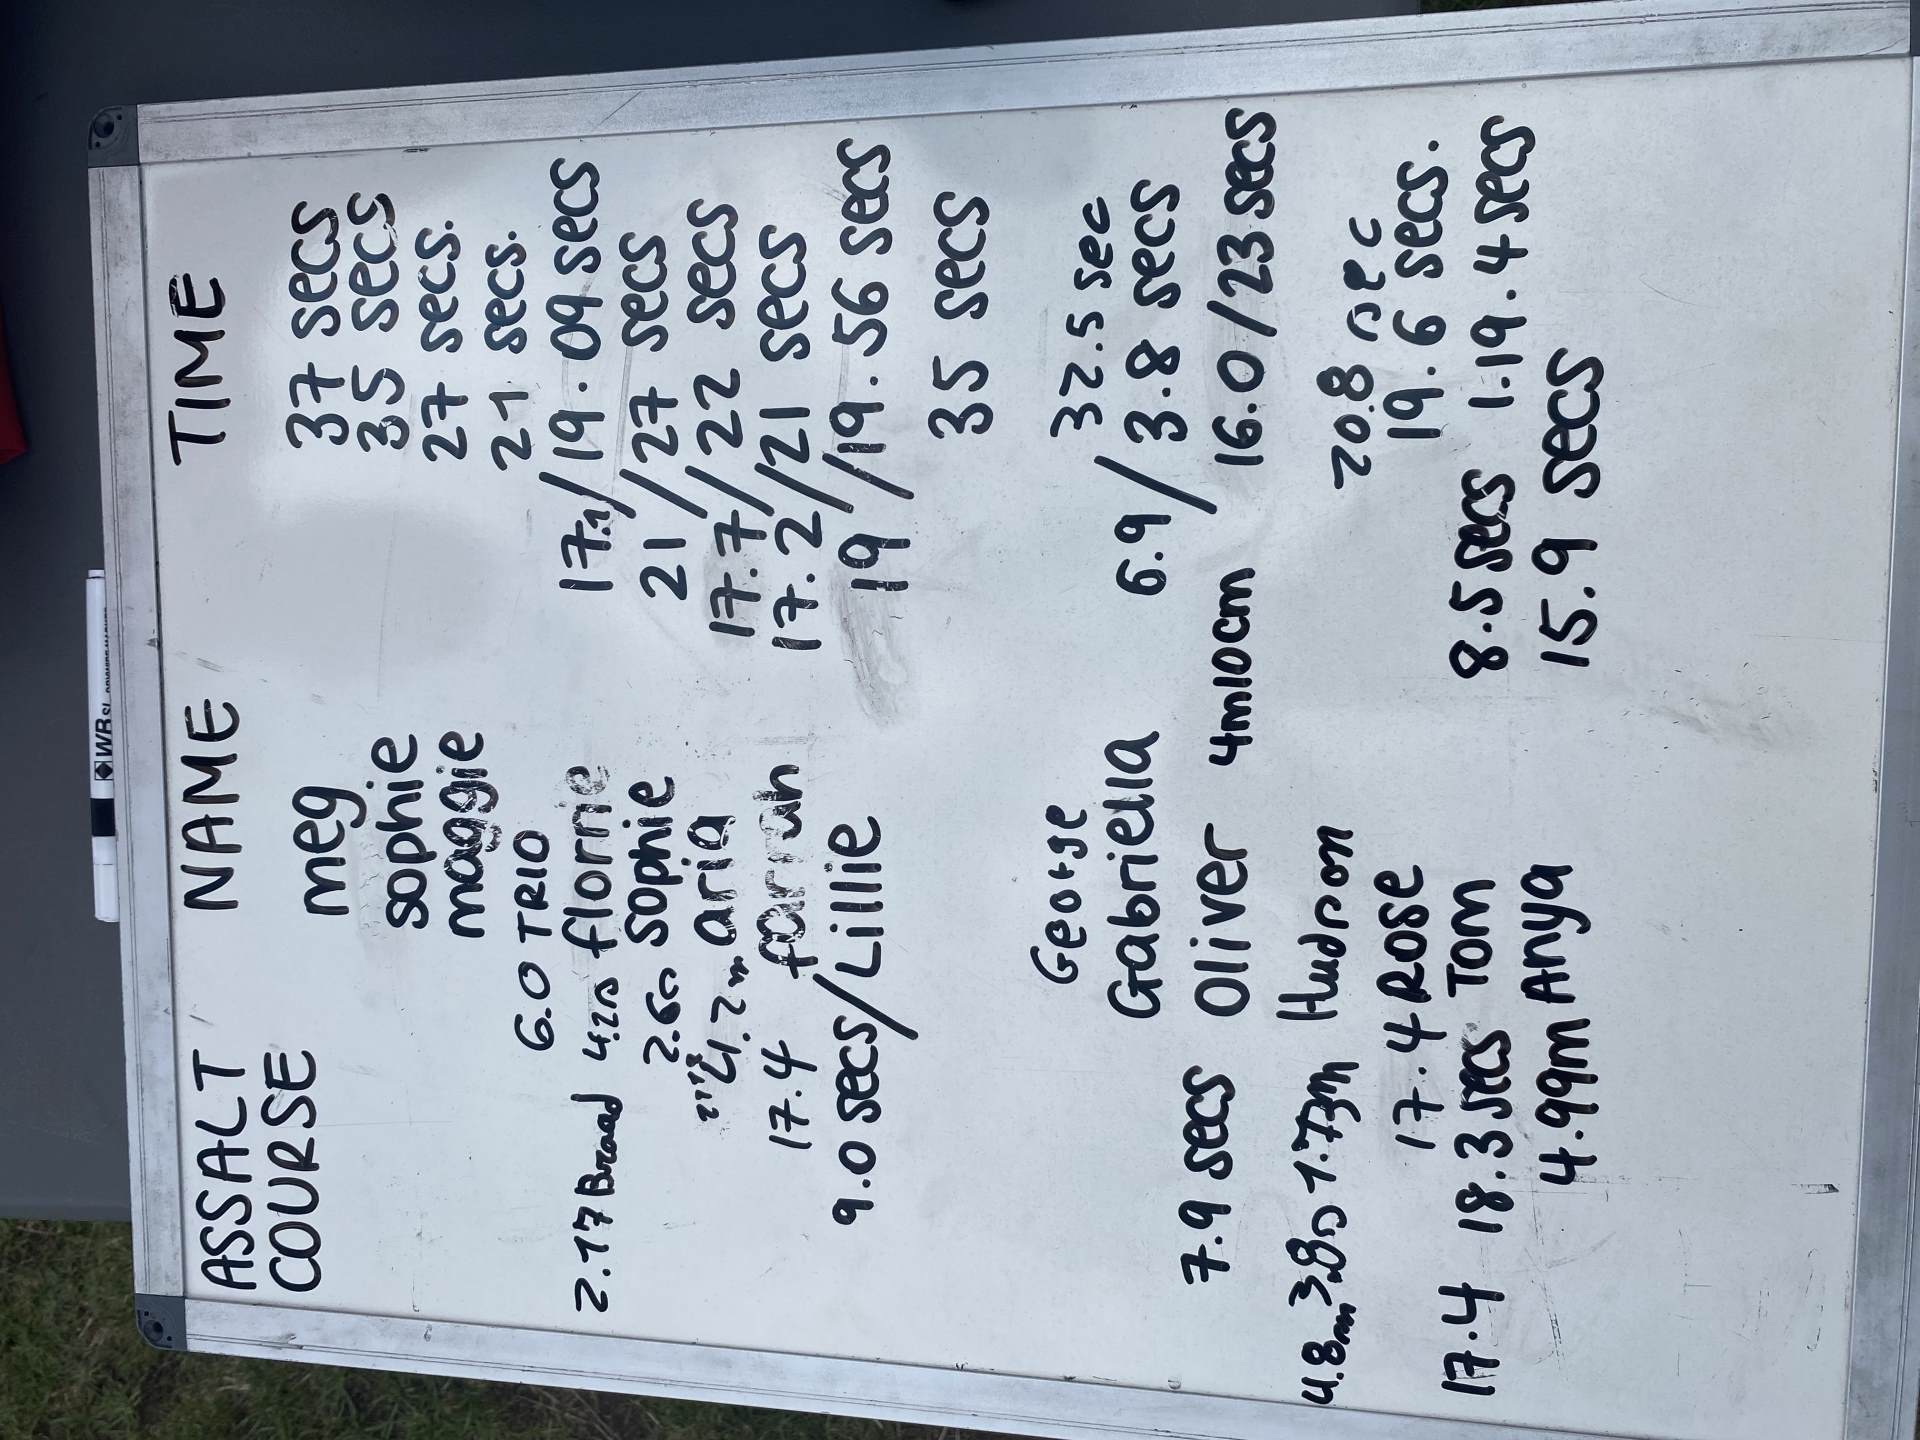 ASSALT NAME TIME
COURSE
meg 37 secs
sophie 35 secs
maggie 27 secs.
6.0 TRIO 21 secs.
2.17 Broad 4.2s florrie 17.1/19.09 secs
2.6s sophie 21/27 secs
4.2m aria 17.7/22 secs
17.4 farrah 17.2/21 secs
9.0 secs/Lillie 19/19.56 secs
35 secs
George 32.5 sec
Gabriella 6.9/3.8 secs
7.9 secs Oliver 4m10cm 16.0/23 secs
4.8m 3.8s 1.73m Hudson 20.8 sec
17.4 ROSE 19.6 secs.
17.4 18.3 secs TOM 8.5 secs 1.19.4 secs
4.99m Anya 15.9 secs
WB